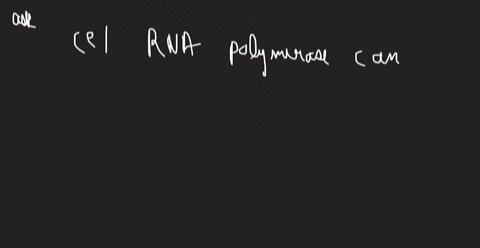 ask
cel RNA polymerase can